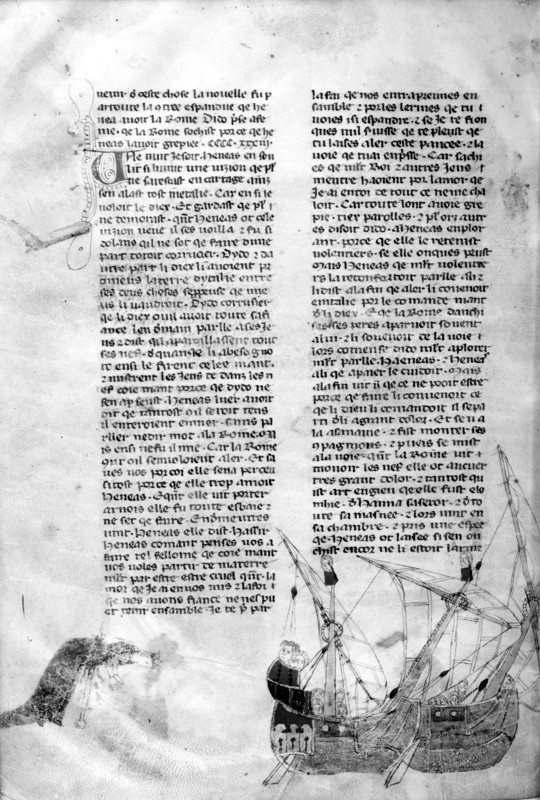 uenir d ceste chose la nouelle fu p
artoute la otree espandue qe he
nea auoit la Roine Dido pse afe
me qe la Roine sochist porce qe he
neas lauoit grepiee
ne nuit se soit heneas en son
lit si li uint une uizion qe pl
ne sarestast en cartage ainz
sen alast tost metalie Car en si le
uoloit le diex Et gardast qe pl i
ne demorast qnt heneas ot cele
uizion ueue il ses uoilla z fu si
dolans qil ne sot qe faire dune
part toroit corrucier Dydo z da
utre part li diex li auoient pr
omeus la terre dytalie entre
ses deus choses seppense qe mie
us li uaudroit Dydo corrusier
qe li diex ou il auoit toute sa fi
ance len dmain parlle a ses Je
ns z dist qil aparillassent tout
ses nef
te ensi le firent celee mant
z mistrent les Jens de dans les n
ef coie mant porce qe dydo ne
sen aperseust heneas liuer auoit
dit qe tantost qil se uoit tens
il enteroient en mer sanns pa
rlier nedir mot ala Roine
is ensi nefu il mie Car la Roine
qnt oil sen uoloient aler Et sa
ues uos porcoi elle sena perceu
si tost porce qe elle trop amoit
heneas Eqnt elle uit porter
arnois elle fu toute esbaie z
ne set qe faire
uint heneas elle dist
heneas comant penses uos a
faire tel fellome qe coie mant
uos uoles partir de ma terre
mlt par estre estre cruel qnt la
mor qe Je ai en uos mis z la foi
qe nos auons fiance ne nes pu
et tenir ensamble Je te p par
la fai qe nos entrapreimes en
samble z por les lermes qe tu
uoies isi espandre z se Je te sion
qes mil fuisse qe te pleust qe
tu laises aler ceste pancee z la
uoie qe tu as enprisse Car sach
es qe mlt Roi z autres Jens
meutre haoient por lamor qe
Je ai entor de tout ce ne me cha
loit Car toute lont auoie gre
pie tiex parolles z pl ors autr
es disoit dido a heneas en plor
ant porce qe elle le retenist
uolentiers se elle onqes peust
mais heneas qe mlt uolente
rs la reconfortoit parlle a li z
li dist ala fin qe aler li couenoit
en italie por le comande mant
d li diex E qe la Roine
ses peres aparuoit souent
a lui z li souenoit de la uoie
lors comense dido mlt a plorer
mlt parlle heneas z heneas
ali qe apaier le cuidoit mais
ala fin uit il qe ce ne pooit estre
porce qe faire li couenoit ce
qe li dieu li comandoit il se pa
rti d li a grant dolor Et se u a
la asimaine z fist monter ses
qpagnons z puis se mist
ala uoie qnt la Roine uit
monoir les nef elle ot au cuer
tres grant dolor z tantost qu
ist art engien qe elle fust elo
mbie d hanna sa seror z d to
ute sa masnee z lors uint en
sa chambre z pris une espee
qe heneas ot laisee si sen on
chist encor ne li estoit larme